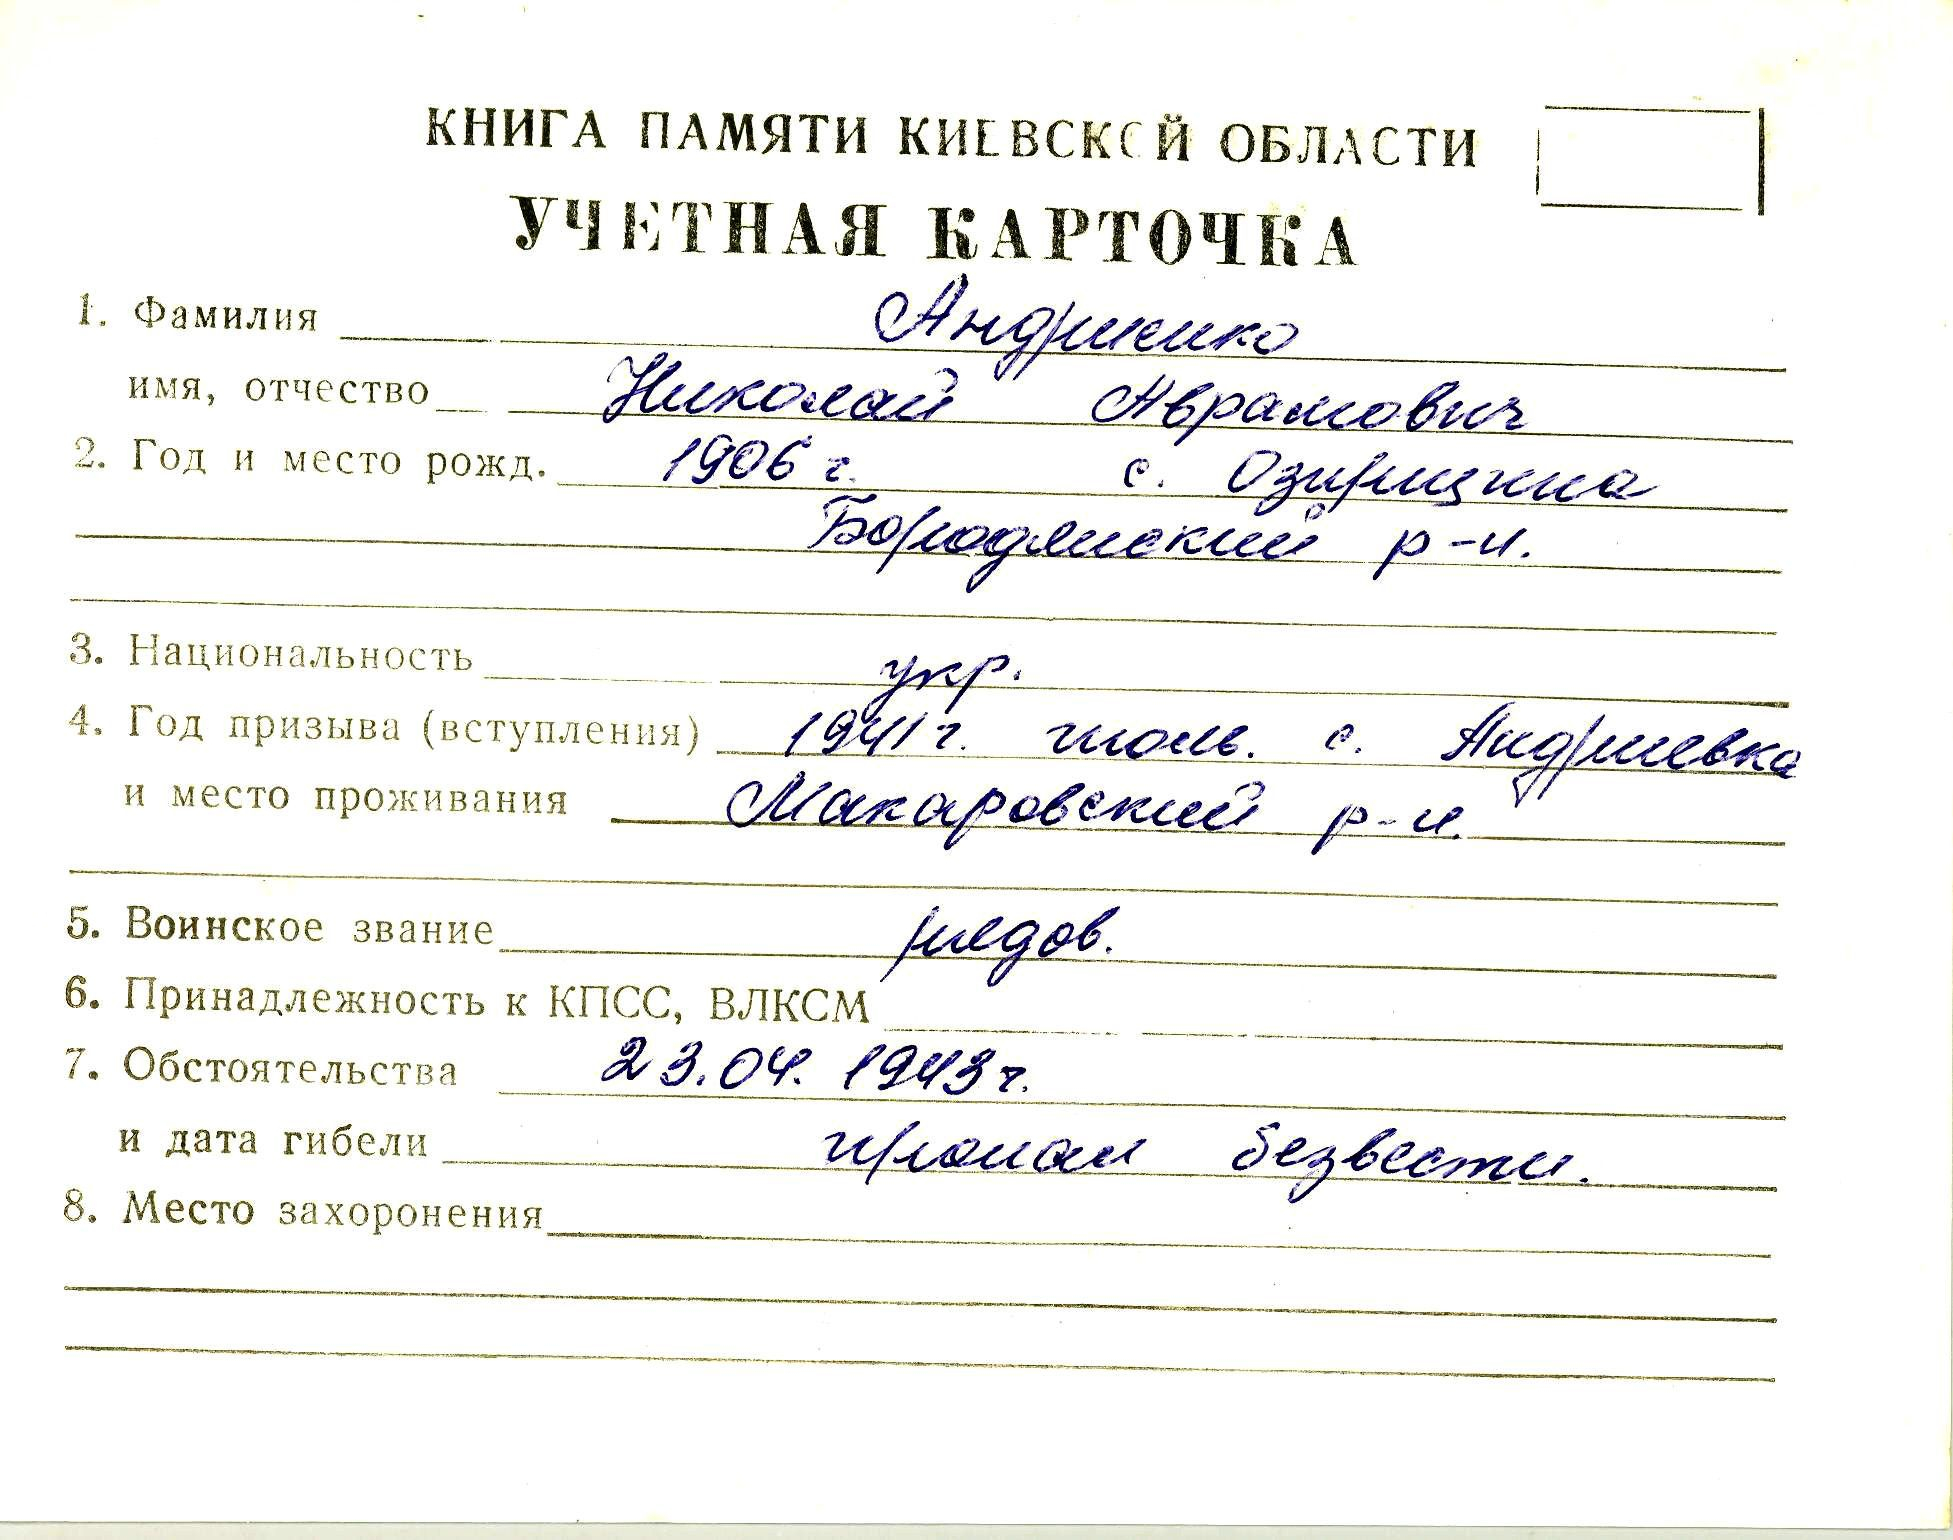 КНИГА ПАМЯТИ КИЕВСКОЙ ОБЛАСТИ
УЧЕТНАЯ КАРТОЧКА
1. Фамилия Андриенко
имя, отчество Николай Аврамович
2. Год и место рожд. 1906 г. с. Озирщина
Бородянский р-н.
3. Национальность укр.
4. Год призыва (вступления) 1941 г. июль. с. Андриевка
и место проживания Макаровский р-н.
5. Воинское звание рядов.
6. Принадлежность к КПСС, ВЛКСМ
7. Обстоятельства 23.04.1943 г.
и дата гибели пропал безвести.
8. Место захоронения